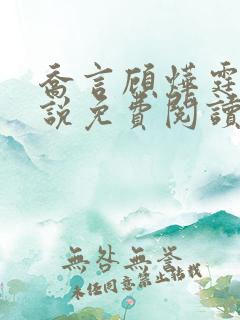 喬言顧燁霆
說免費閱讀
無咎無譽
未任同意禁止描栈